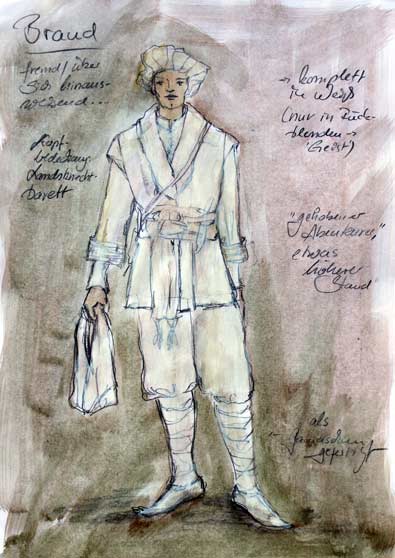 Brand
fremd / über
sich hinaus-
weisend...
Kopf-
bedeckung:
Landsknecht-
Barett
→ komplett
in Weiß
(nur in Rück-
blenden →
Geist)
"gehobener
Abenteurer,"
etwas
höherer
Stand
als
gefertigt